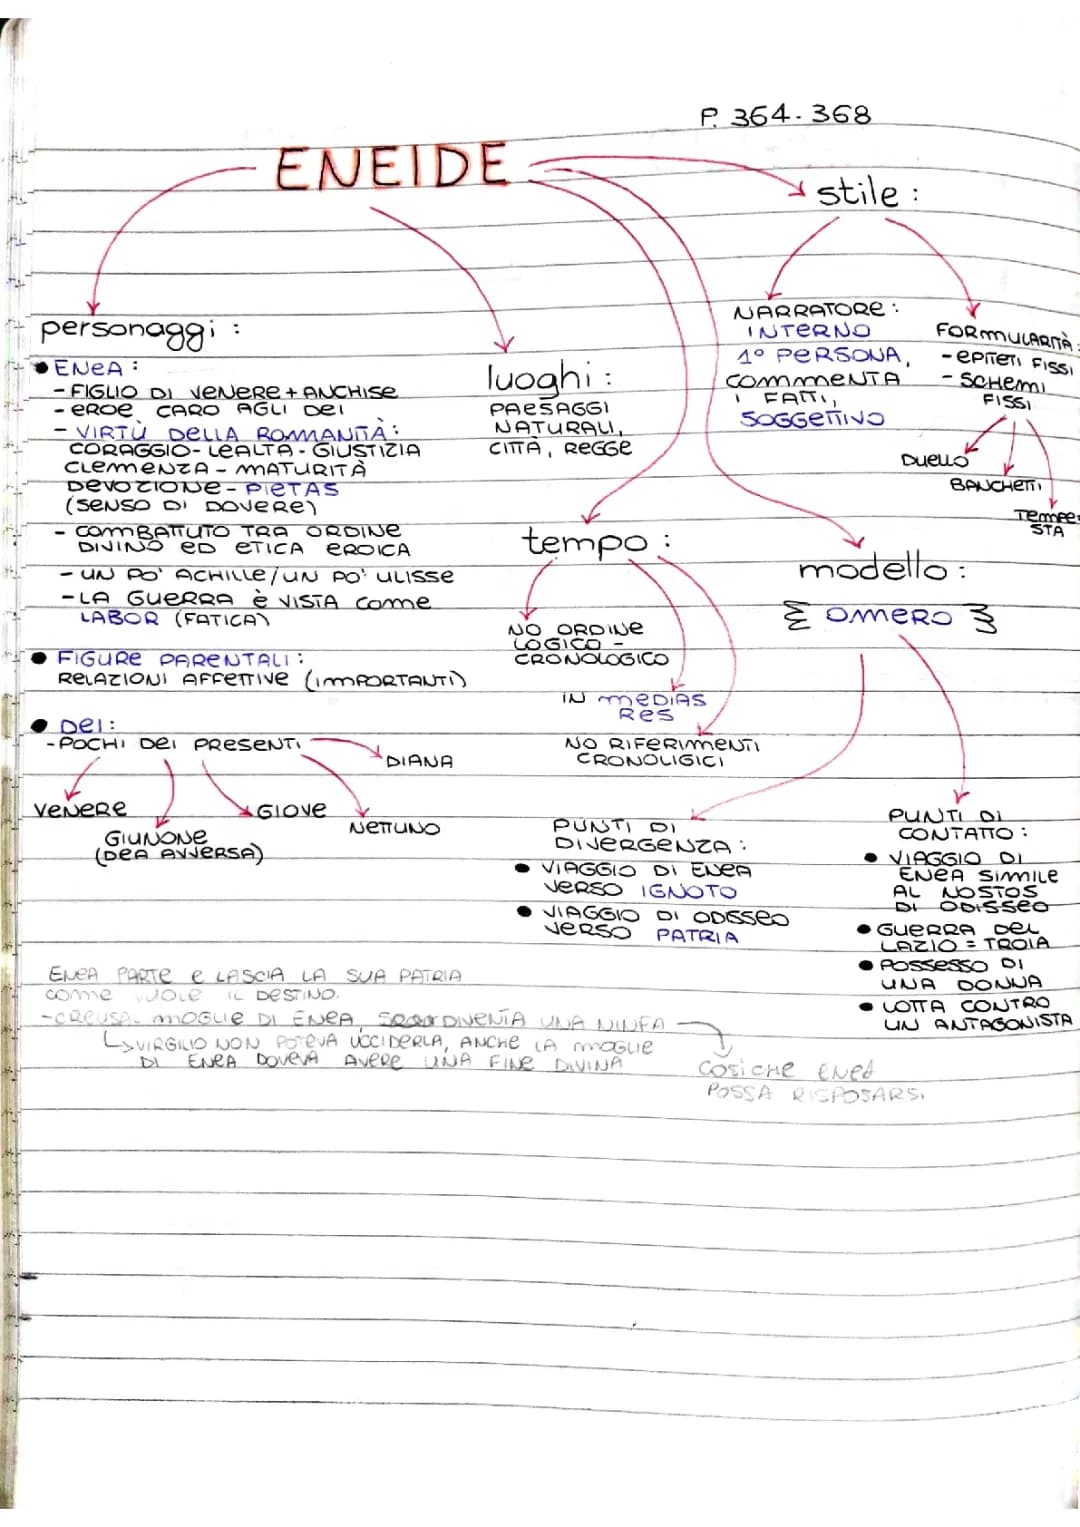 P. 364-368
ENEIDE
stile:
NARRATORE:
INTERNO
1° PERSONA,
COMMENTA
I FATTI,
SOGGETTIVO
FORMULARITÀ:
-EPITETI FISSI
-SCHEMI
FISSI
DUELLO
BANCHETTI
TEMPE-
STA
personaggi:
● ENEA:
-FIGLIO DI VENERE + ANCHISE
-EROE CARO AGLI DEI
-VIRTÙ DELLA ROMANITÀ:
CORAGGIO-LEALTÀ-GIUSTIZIA
CLEMENZA-MATURITÀ
DEVOZIONE-PIETAS
(SENSO DI DOVERE)
- COMBATTUTO TRA ORDINE
DIVINO ED ETICA EROICA
-UN PO' ACHILLE/UN PO' ULISSE
-LA GUERRA È VISTA COME
LABOR (FATICA)
● FIGURE PARENTALI:
RELAZIONI AFFETTIVE (IMPORTANTI)
● DEI:
-POCHI DEI PRESENTI
DIANA
VENERE
GIUNONE
(DEA AVVERSA)
GIOVE
NETTUNO
luoghi:
PAESAGGI
NATURALI,
CITTÀ, REGGE
tempo:
NO ORDINE
LOGICO-
CRONOLOGICO
IN MEDIAS
RES
NO RIFERIMENTI
CRONOLIGICI
modello:
OMERO
PUNTI DI
DIVERGENZA:
● VIAGGIO DI ENEA
VERSO IGNOTO
● VIAGGIO DI ODISSEO
VERSO PATRIA
PUNTI DI
CONTATTO:
● VIAGGIO DI
ENEA SIMILE
AL NOSTOS
DI ODISSEO
● GUERRA DEL
LAZIO = TROIA
● POSSESSO DI
UNA DONNA
● LOTTA CONTRO
UN ANTAGONISTA
ENEA PARTE E LASCIA LA SUA PATRIA
COME VUOLE IL DESTINO.
-CREUSA- MOGLIE DI ENEA DIVENTA UNA NINFA
VIRGILIO NON POTEVA UCCIDERLA, ANCHE LA MOGLIE
DI ENEA DOVEVA AVERE UNA FINE DIVINA
COSì CHE ENEA
POSSA RISPOSARSI